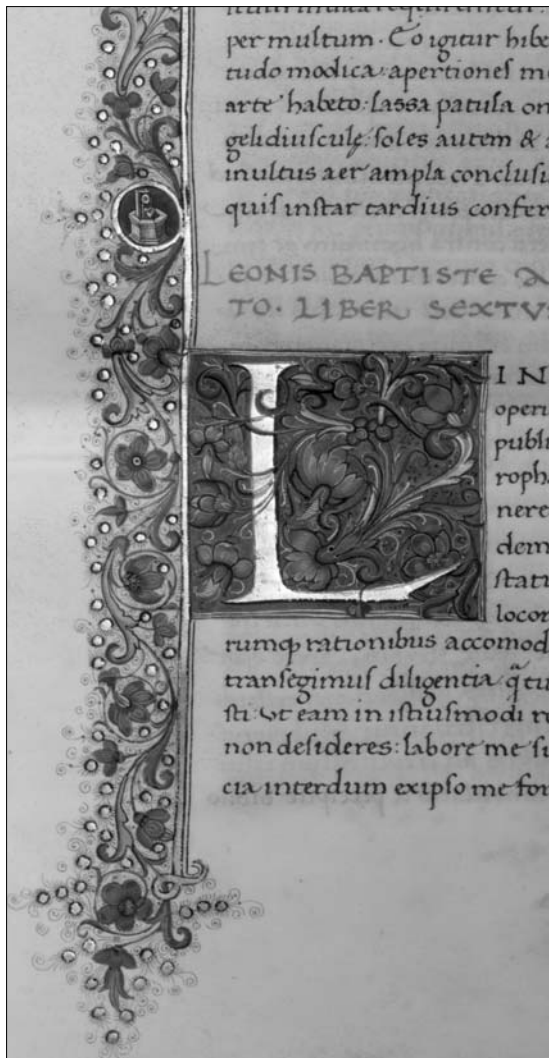 per multum. Eo igitur hibe
tudo modica: apertiones mo
arte habeto: lassa patula on
gelidiuscule: soles autem &
multus aer ampla conclusi
quis instar tardius confer
LEONIS BAPTISTE
TO. LIBER SEXTV
L IN
operi
publi
roph
nere
dem
stati
locor
rumq rationibus accomod
transegimus diligentia q̃ tu
sti: ut eam in istiusmodi r
non desideres: labore me su
cia interdum ex ipso me for